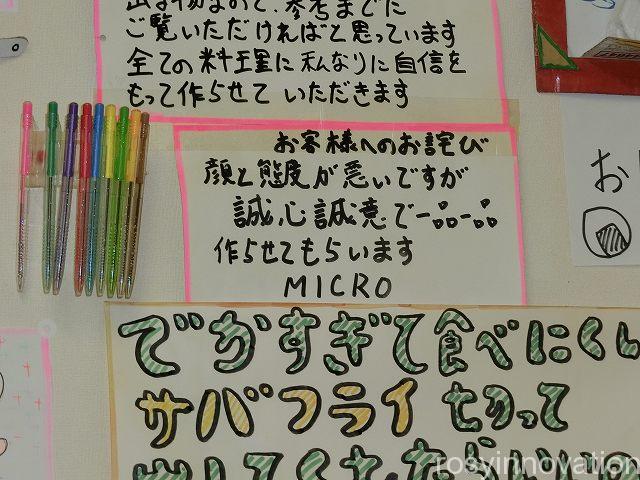 ご覧いただければと思っています
全ての料理に私なりに自信を
もって作らせていただきます
お客様へのお詫び
顔と態度が悪いですが
誠心誠意で
作らせてもらいます
MICRO
お
でかすぎて食べにくい
サバフライ切って
rosyinnovation